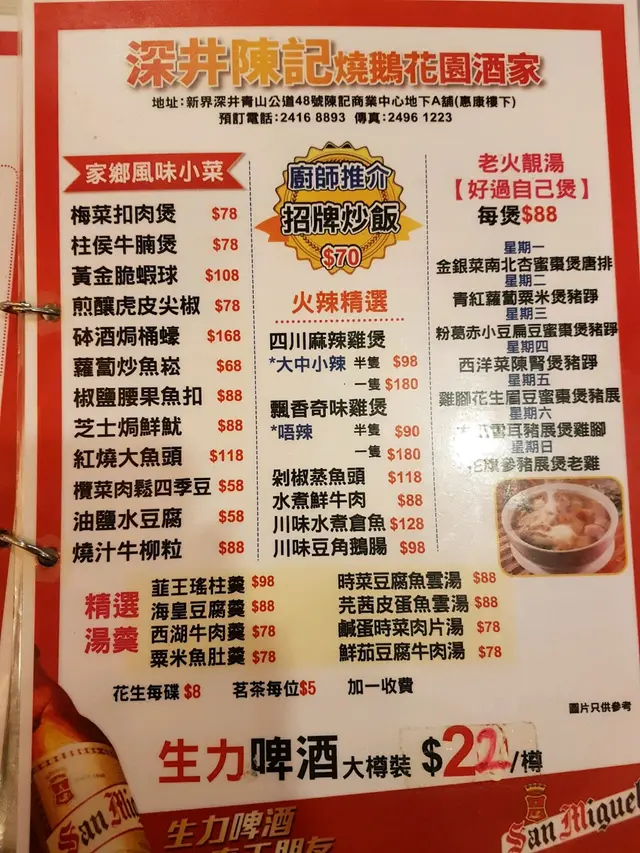 深井陳記燒鵝花園酒家
地址:新界深井青山公道48號陳記商業中心地下A舖(惠康樓下)
預訂電話:2416 8893 傳真:2496 1223
家鄉風味小菜
梅菜扣肉煲 $78
柱侯牛腩煲 $78
黃金脆蝦球 $108
煎釀虎皮尖椒 $78
砵酒焗桶蠔 $168
蘿蔔炒魚崧 $68
椒鹽腰果魚扣 $88
芝士焗鮮魷 $88
紅燒大魚頭 $118
欖菜肉鬆四季豆 $58
油鹽水豆腐 $58
燒汁牛柳粒 $88
廚師推介
招牌炒飯
$70
火辣精選
四川麻辣雞煲
*大中小辣 半隻 $98
一隻 $180
飄香奇味雞煲
*唔辣 半隻 $90
一隻 $180
剁椒蒸魚頭 $118
水煮鮮牛肉 $88
川味水煮倉魚 $128
川味豆角鵝腸 $98
老火靚湯
【好過自己煲】
每煲$88
星期一
金銀菜南北杏蜜棗煲唐排
星期二
青紅蘿蔔粟米煲豬踭
星期三
粉葛赤小豆扁豆蜜棗煲豬踭
星期四
西洋菜陳腎煲豬踭
星期五
雞腳花生眉豆蜜棗煲豬展
星期六
雪耳豬展煲雞腳
星期日
旗參豬展煲老雞
精選
湯羹
韮王瑤柱羹 $98
海皇豆腐羹 $88
西湖牛肉羹 $78
粟米魚肚羹 $78
時菜豆腐魚雲湯 $88
芫茜皮蛋魚雲湯 $88
鹹蛋時菜肉片湯 $78
鮮茄豆腐牛肉湯 $78
花生每碟 $8 茗茶每位$5 加一收費
圖片只供參考
生力啤酒 大樽裝 $22/樽
San Mig
生力啤酒
San Miguel